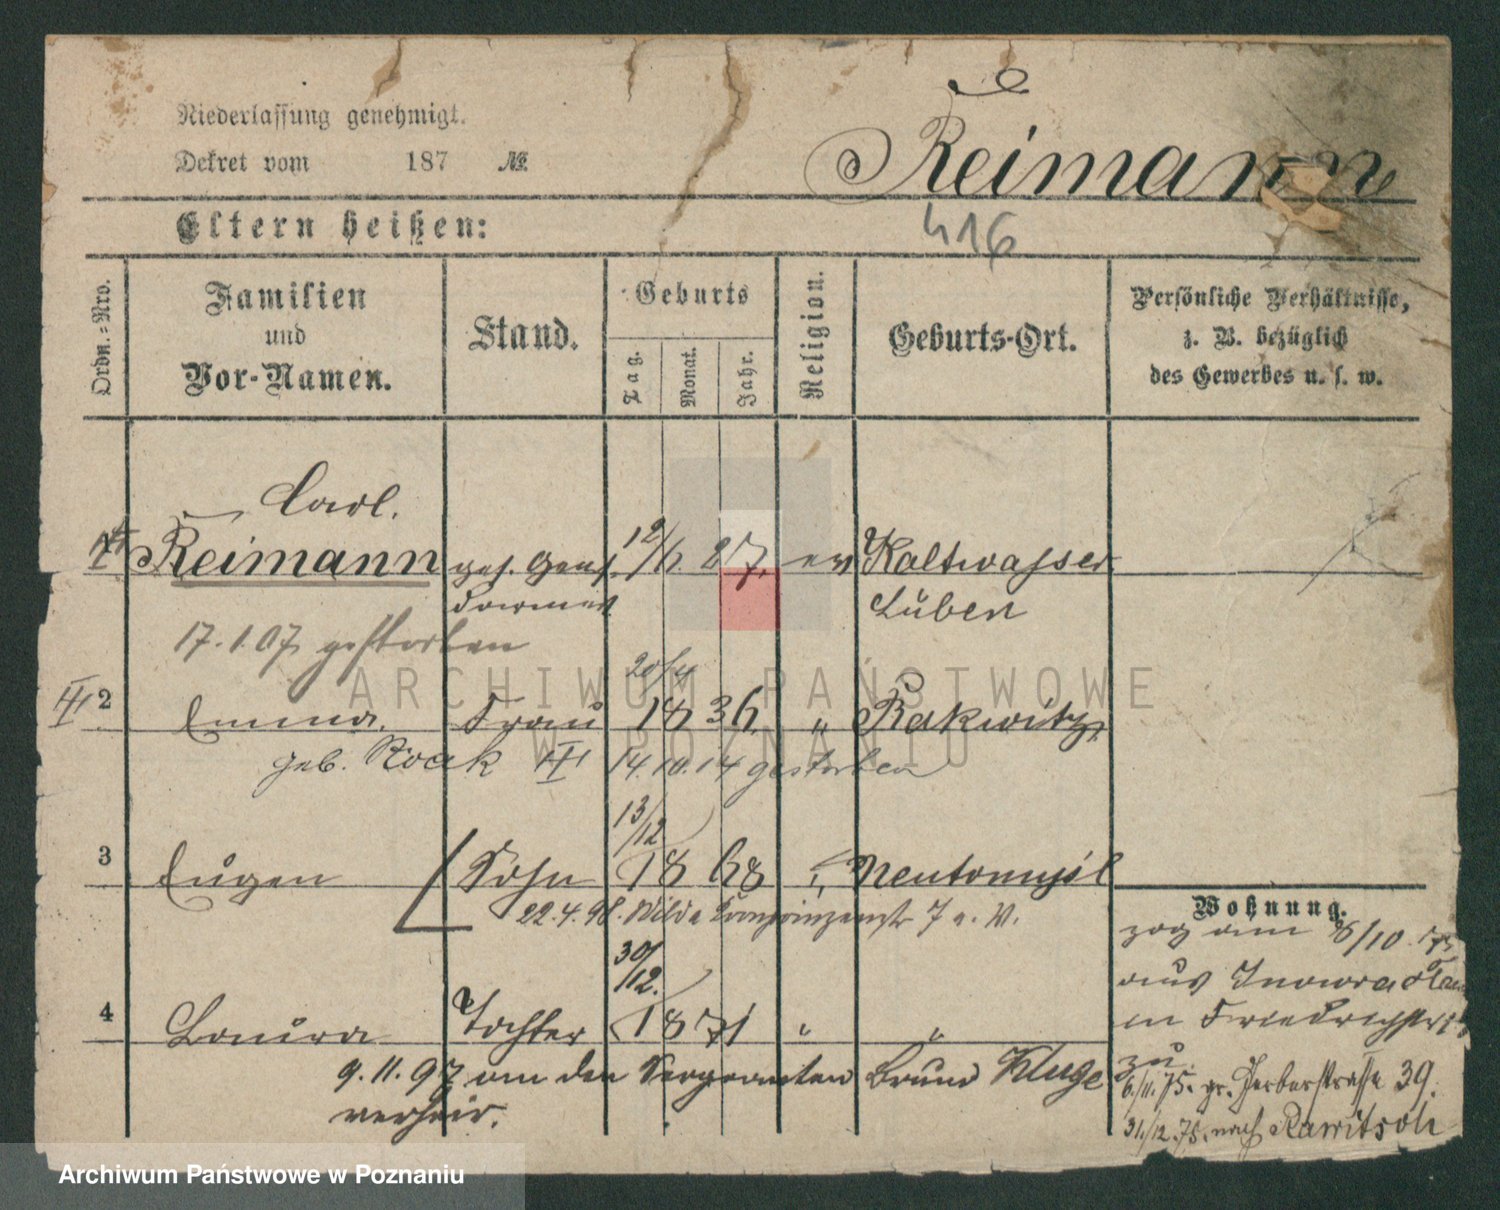 Niederlassung genehmigt.
Dekret vom 187 №
Reimann
Eltern heißen:
416
Ordn.-Nro.
Familien und Vor-Namen.
Stand.
Geburts
Tag. Monat. Jahr.
Religion.
Geburts-Ort.
Persönliche Verhältnisse, z. B. bezüglich des Gewerbes u. s. w.
Carl.
1 Reimann 12/6. 27. ev Kaltwasser
Lüben
17.1.07 gestorben
20/4
2 Emma. Frau 1836. " Rakwitz,
geb. 14.10.14 gestorben
13/12
3 Eugen Sohn 1868 " Neutomysl
22.4.98. Wilda Kronprinzenstr 7 a. W.
30/12.
4 Tochter 1871 " "
9.11.97 an den Sergeanten Bruno Kluge
verheir.
Wohnung.
zog am 6/10
aus Inowraclaw
in Friedrichstr
zu
6/11.75. gr. Gerberstrasse 39.
31/12.75. nach Rawitsch
ARCHIWUM PAŃSTWOWE
W POZNANIU
Archiwum Państwowe w Poznaniu